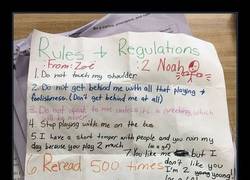 Rules + Regulations
From: Zoë
2 Noah
1. Do not touch my shoulder
2. Do not get behind me with all that playing +
foolishness. (Don't get behind me at all)
3. Do not speak to me unless its a greeting which
4. Stop playing with me on the bus
5 I have a short temper with people and you ruin my
day because you play 2 much
7 You like me but I
don't like you
I'm 2 young
6 Reread 500 times